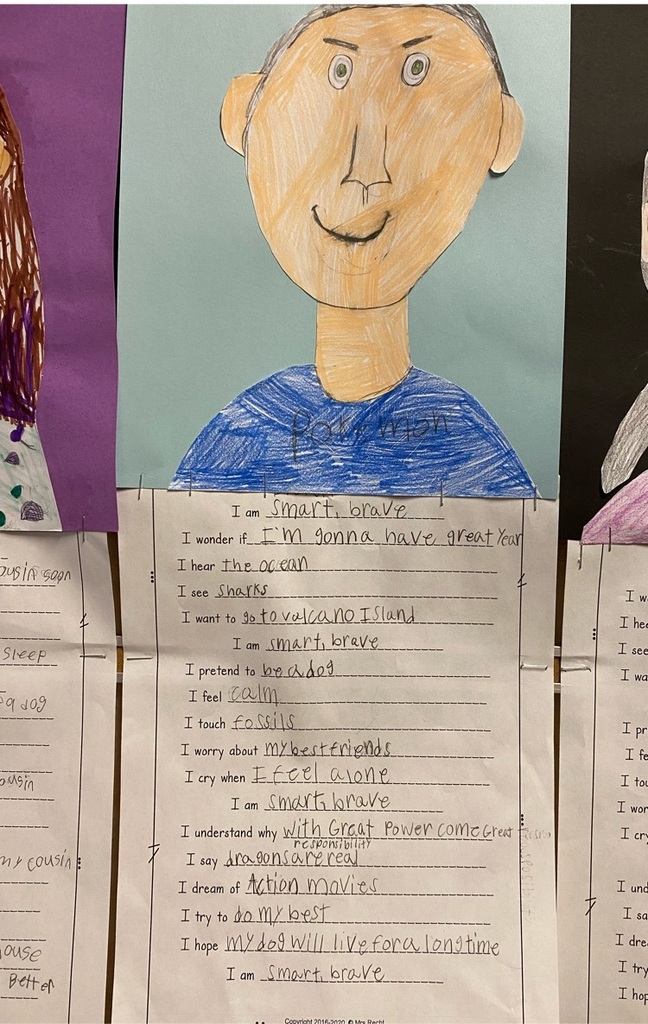 Pokemon
I am smart, brave
I wonder if I'm gonna have great Year
I hear the ocean
I see sharks
I want to go to volcano Island
I am smart, brave
I pretend to be a dog
I feel calm
I touch fossils
I worry about my best friends
I cry when I feel alone
I am smart, brave
I understand why with Great Power come Great
responsibility
I say dragons are real
I dream of Action movies
I try to do my best
I hope my dog will live for a long time
I am smart, brave
Copyright 2016-2020 © Mrs Recht
ousin soon
sleep
a dog
ousin
my cousin
ouse
Better
I w
I hea
I see
I wa
I pr
I fe
I tou
I wor
I cry
I und
I sa
I drea
I try
I hop